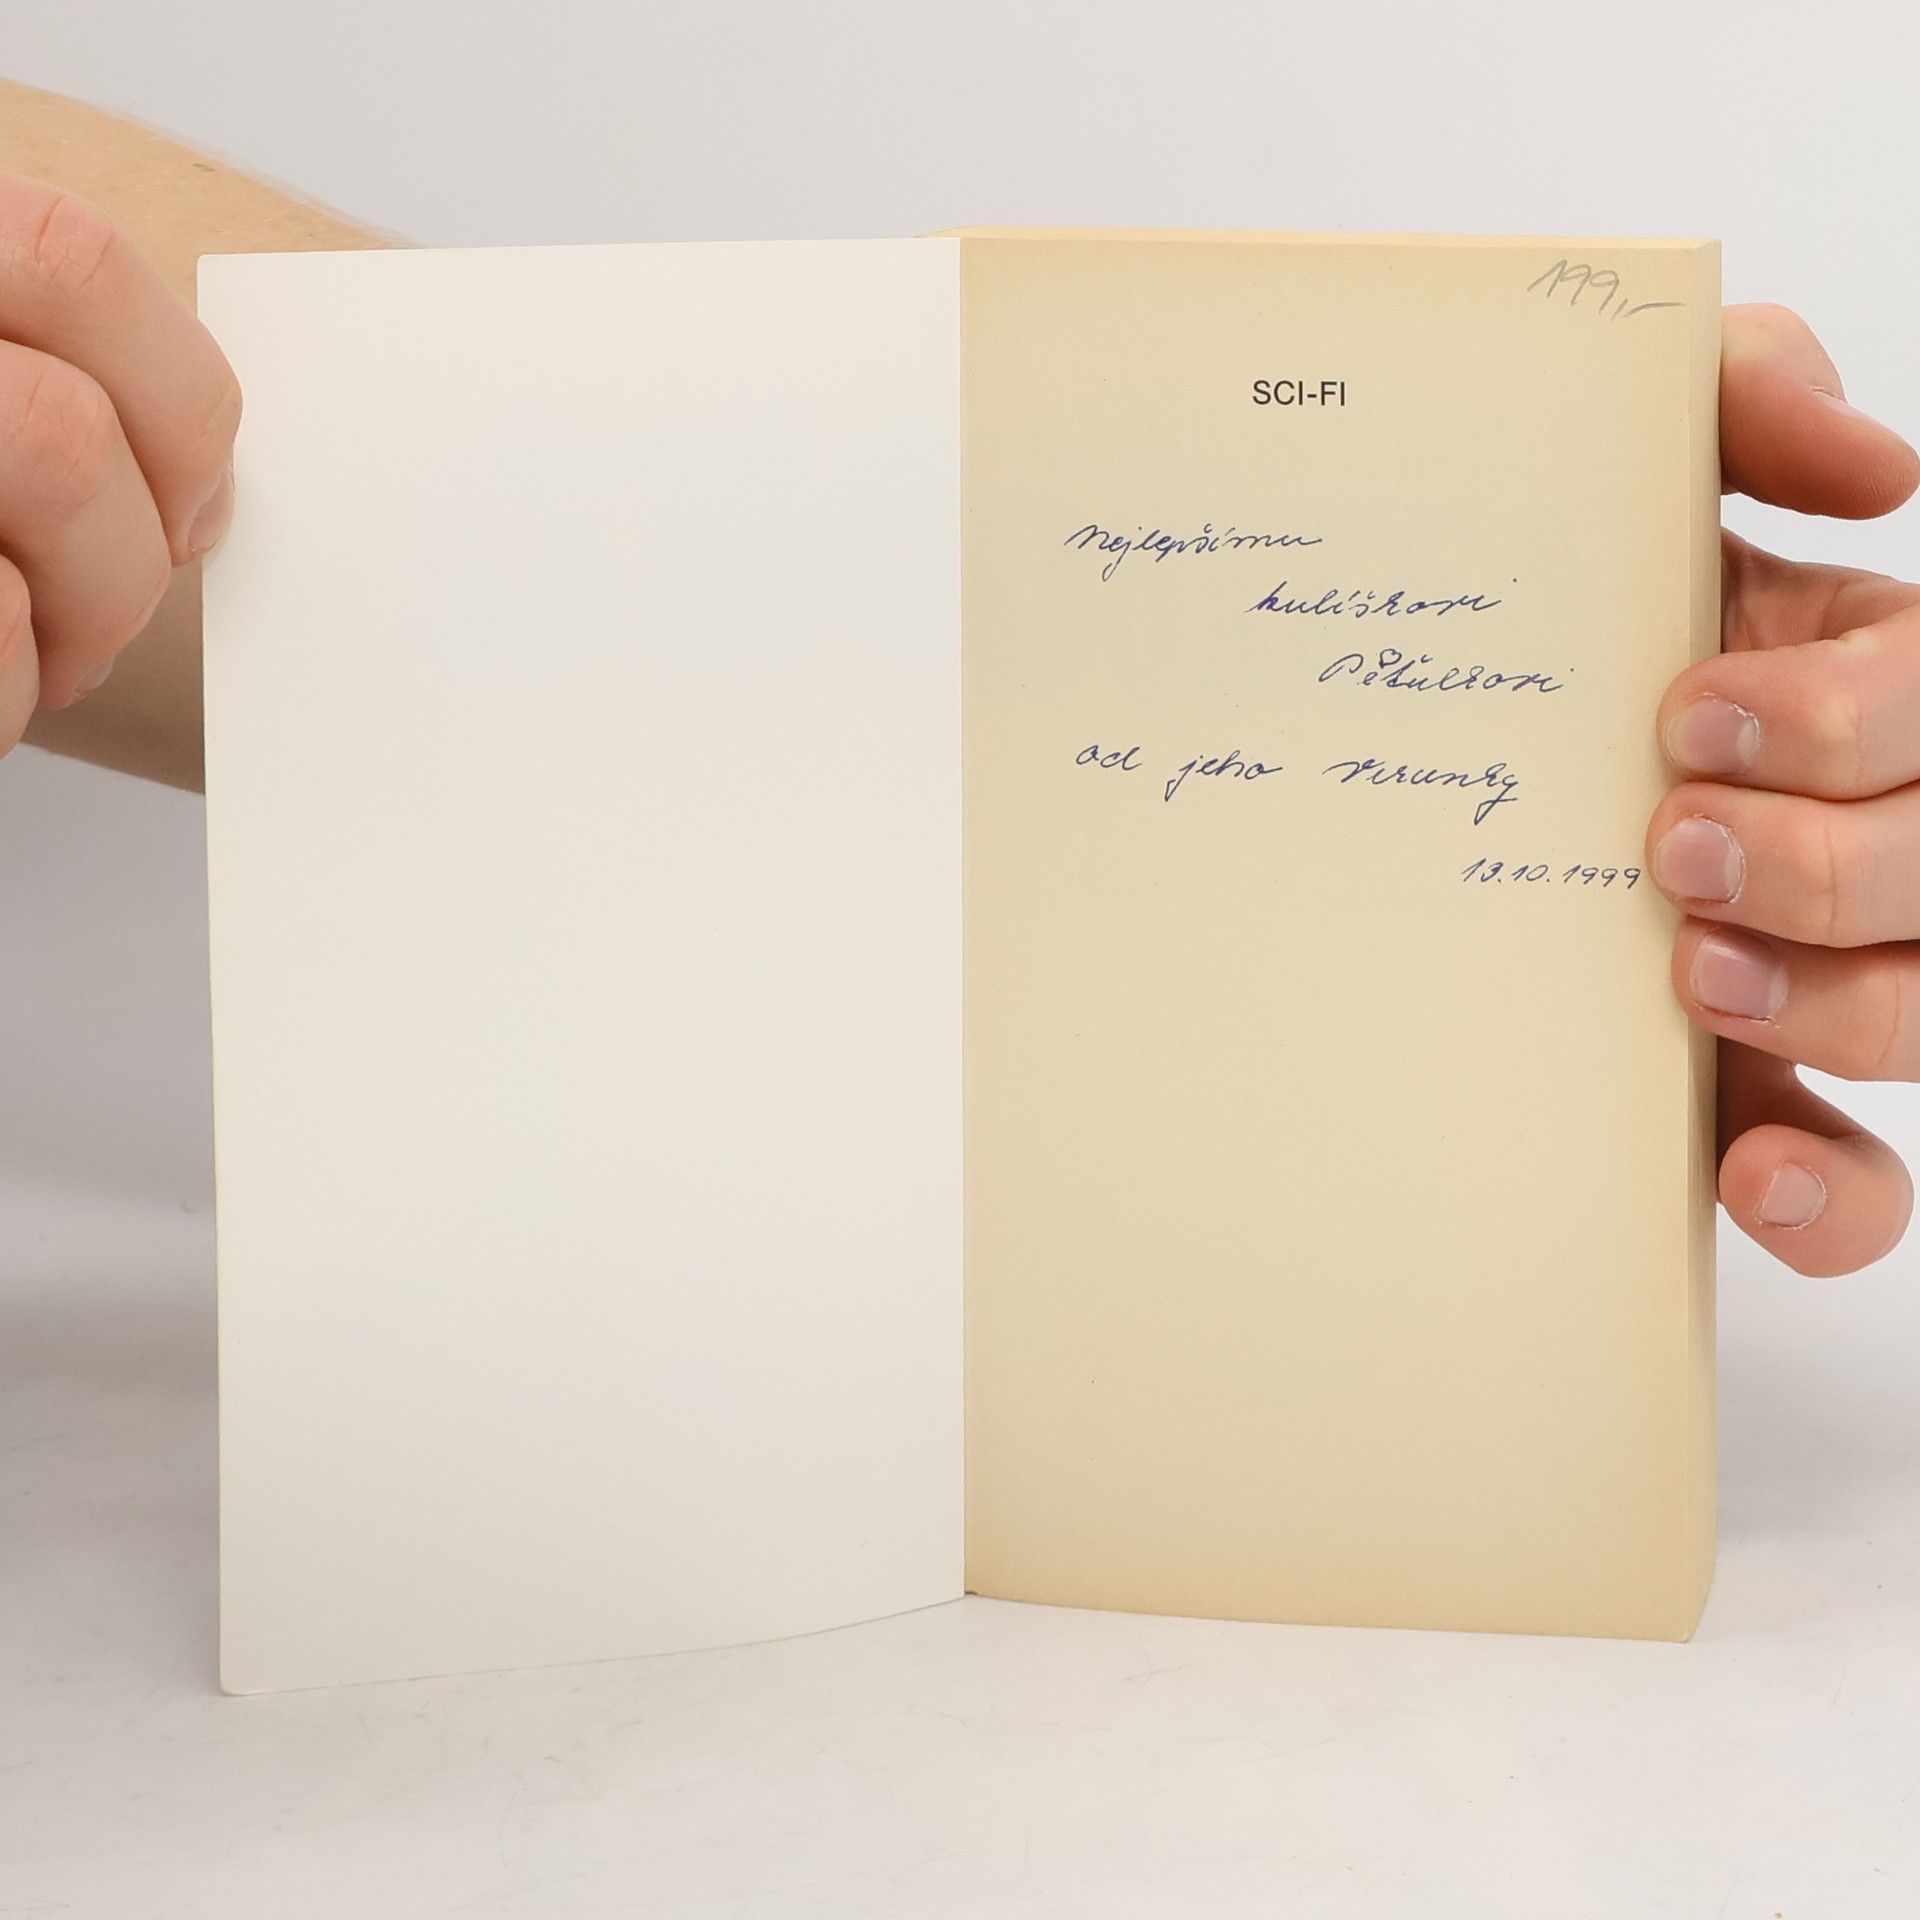 199,-
SCI-FI
Nejlepšímu
kulíškovi
Péťulkovi
od jeho Verunky
13.10.1999